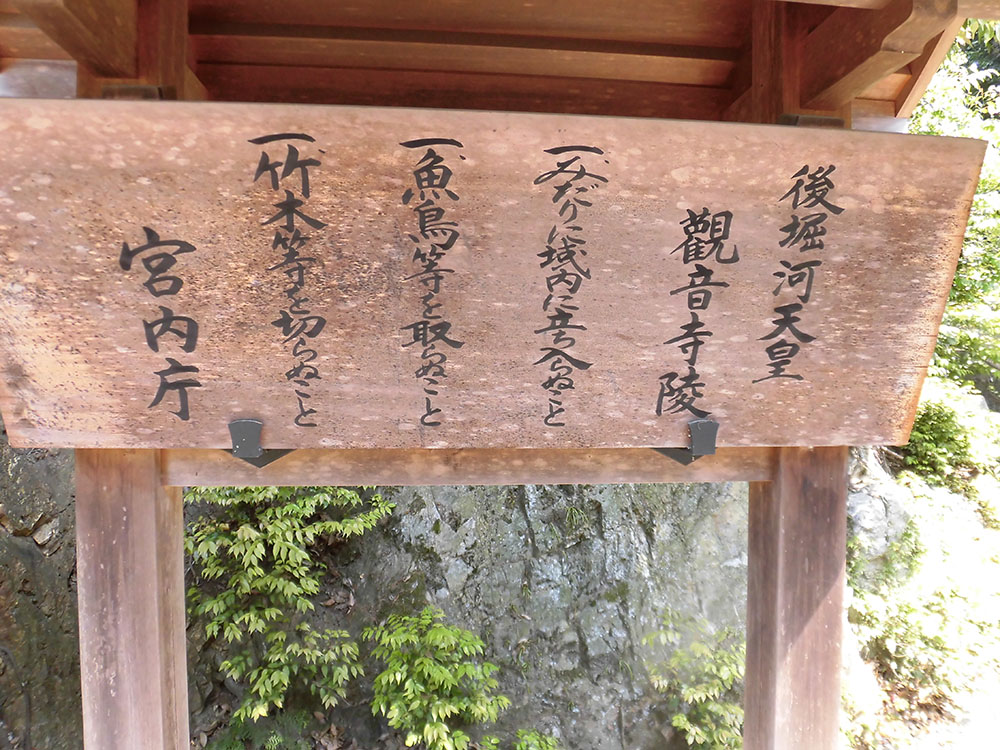 後堀河天皇
觀音寺陵
一みだりに域内に立ち入らぬこと
一魚鳥等を取らぬこと
一竹木等を切らぬこと
宮内庁